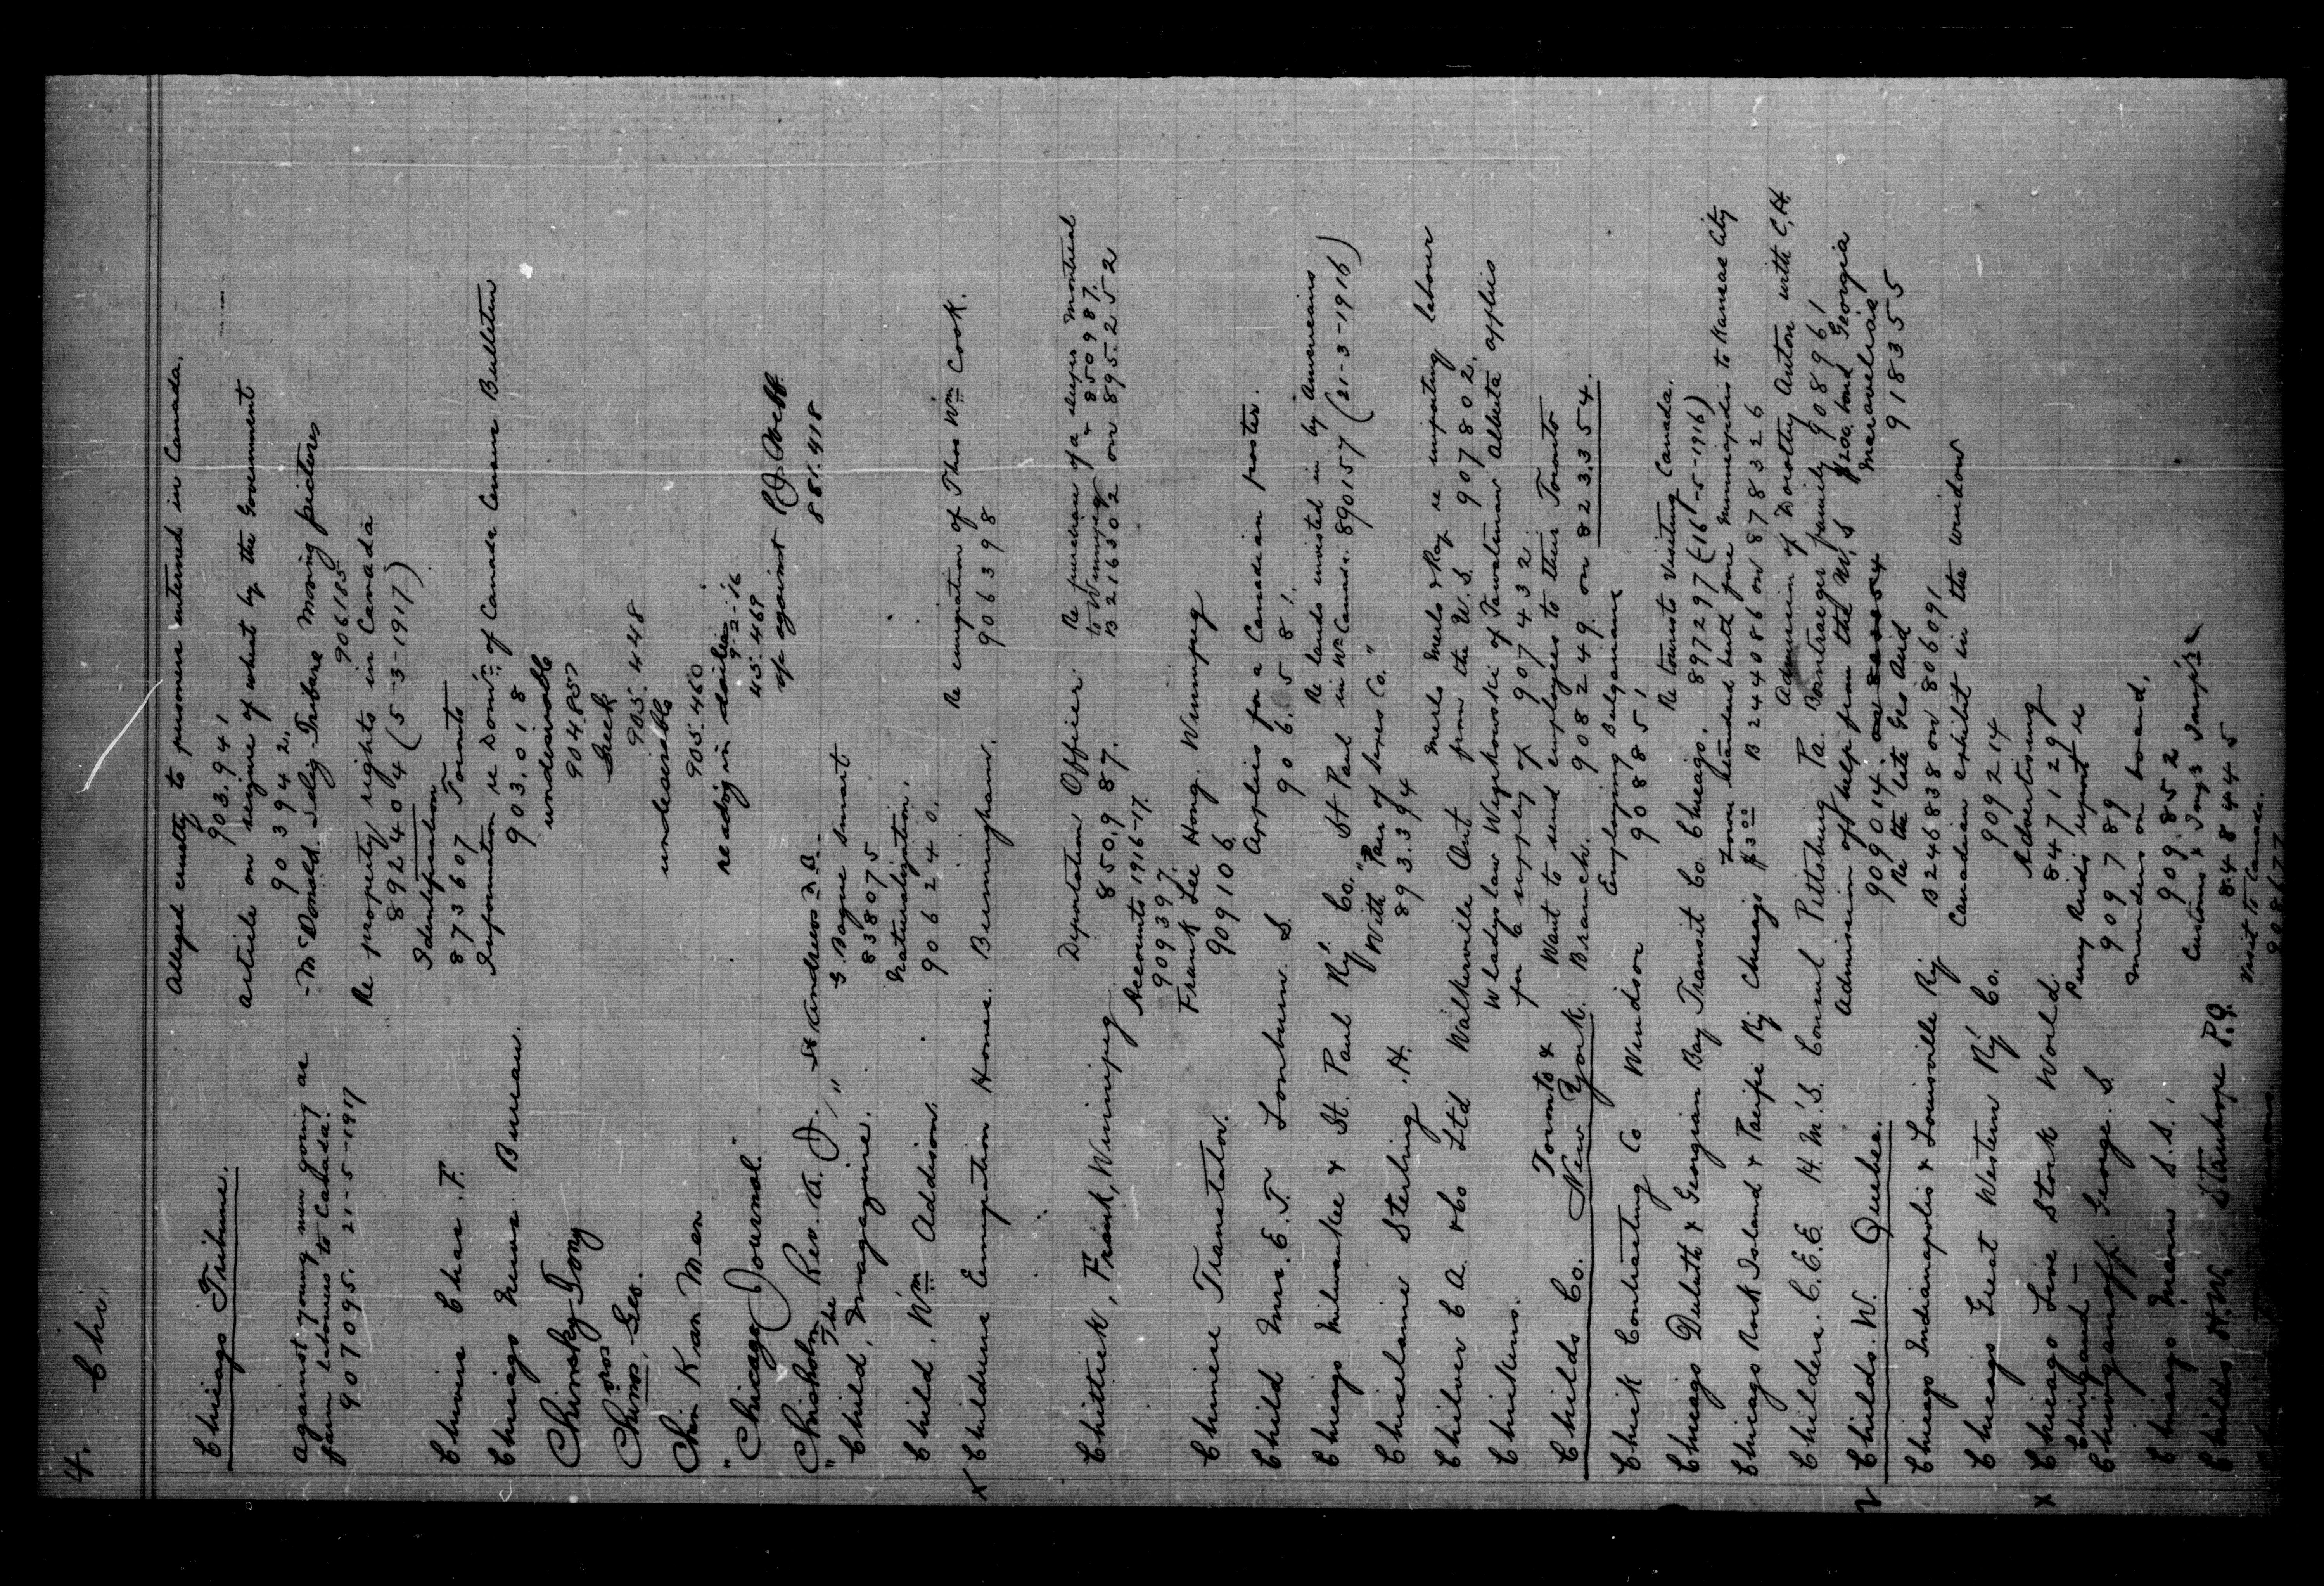 4. Chi.
Chicago Tribune. Alleged cruelty to prisoners interned in Canada.
903.941
Article on seizure of wheat by the Government
903942.
Against young men going as - McDonald. Selig-Tribune moving pictures
farm labourers to Canada. 906185
907095. 21-5-1917 Re property rights in Canada
892404 (5-3-1917)
Chivers Chas. F. Identification
873607 Toronto
Chicago News Bureau. Information re Domn. of Canada Census Bulletin
903.018
Chinsky Tony undesirable
904.857
Chiros, Geo. Greek
905.448
Chin Kan Men undesirable
905.460
"Chicago Journal." re adog in dailies
9-2-16
45.469
Chisholm Rev. A. J. St Andrews N.B. op against P.J. Webb
881.418
"Child, The Magazine. " S. Bayne Smart
838075
Child, Wm Addison. Naturalization.
906240.
X Childrens Emigration Homes. Birmingham. Re emigration of Thos Wm Cook.
906398
Chittick, Frank, Winnipeg Deportation Officer. Re purchase of a sleeper Montreal
850.987. to Winnipeg & 850987.
Accounts 1916-17. B216302 on 895.252
909397.
Chinese Translator. Frank Lee Hong. Winnipeg
909106
Child Mrs. E. T. Loxburn. S. Applies for a Canadian poster.
906.581.
Chicago Milwaukee & St. Paul Ry Co. St Paul Re lands invested in by Americans
in Wn Canada. 890157 (21-3-1916)
Chiselaine Sterling .H. With "Pair of Sixes Co."
893.394
Chilver C A & Co Ltd Walkerville Ont Merlo Merlo & Ray re importing labour
from the U.S. 907802.
Chickens. Wladyslaw Wizykowski of Tawatinaw Alberta applies
for a supply of 907432
Childs Co. Toronto & New York. Want to send employees to their Toronto
Branch. 908249. on 823354.
Chick Contracting Co Windsor Employing Bulgarians
908851
Chicago Duluth & Georgian Bay Transit Co. Chicago. Re tourists visiting Canada.
897297 (16-5-1916)
Chicago Rock Island & Pacific Ry Chicago Lower standard berth fare Minneapolis to Kansas City
$3.00 B244086 on 878326
Childers. C.E.E. H.M.S. Consul Pittsburg Pa. Admission of Dorothy Auton with C.H.
Bontraeger family 908961
Childs. W. Quebec. Admission of help from the U.S $200. bond Georgia
909014. Maravelias
918355
Chicago Indianapolis & Louisville Ry Re the late Geo Aird
B246838 on 806091
Chicago Great Western Ry Co. Canadian exhibit in the window
909214
X Chicago Live Stock World. Advertising
847129
Chivganoff. George. S. Percy Reid's report re
909789
Chicago Maru S.S. Murders on board.
909.852
Childs H.W. Stanhope P.Q. Customs & Imgn Inspr
848445
Visit to Canada.
908677